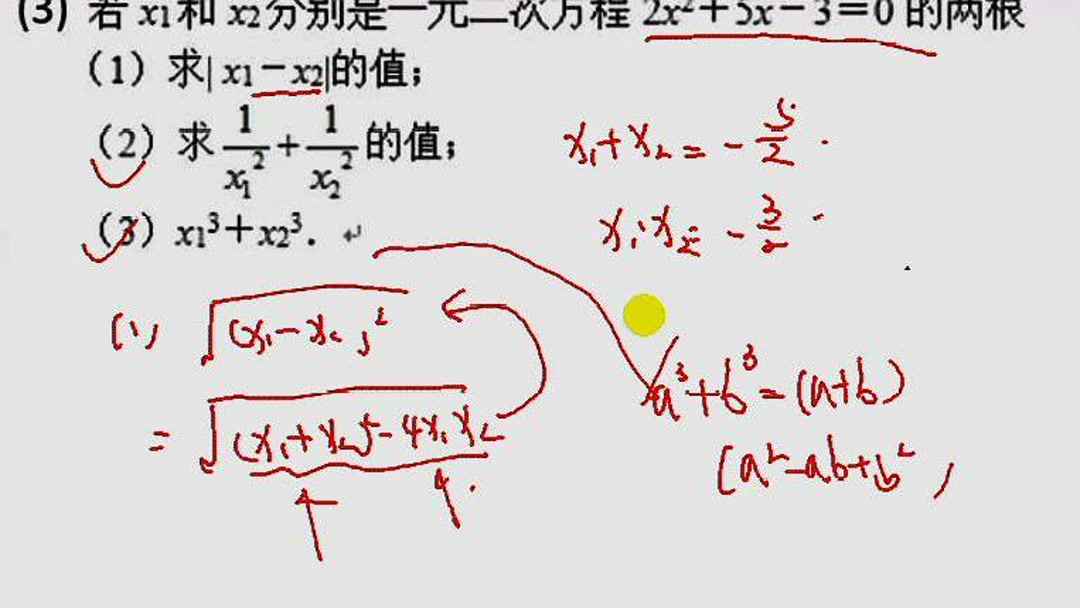 (3) 若 x₁和 x₂分别是一元二次方程 2x²+5x-3=0 的两根
(1) 求|x₁-x₂|的值;
(2) 求 1/x₁² + 1/x₂² 的值;
(3) x₁³+x₂³. ↵
x₁+x₂=-5/2.
x₁·x₂=-3/2.
(1) √(x₁-x₂)²
=√(x₁+x₂)²-4x₁x₂
a³+b³=(a+b)
(a²-ab+b²)